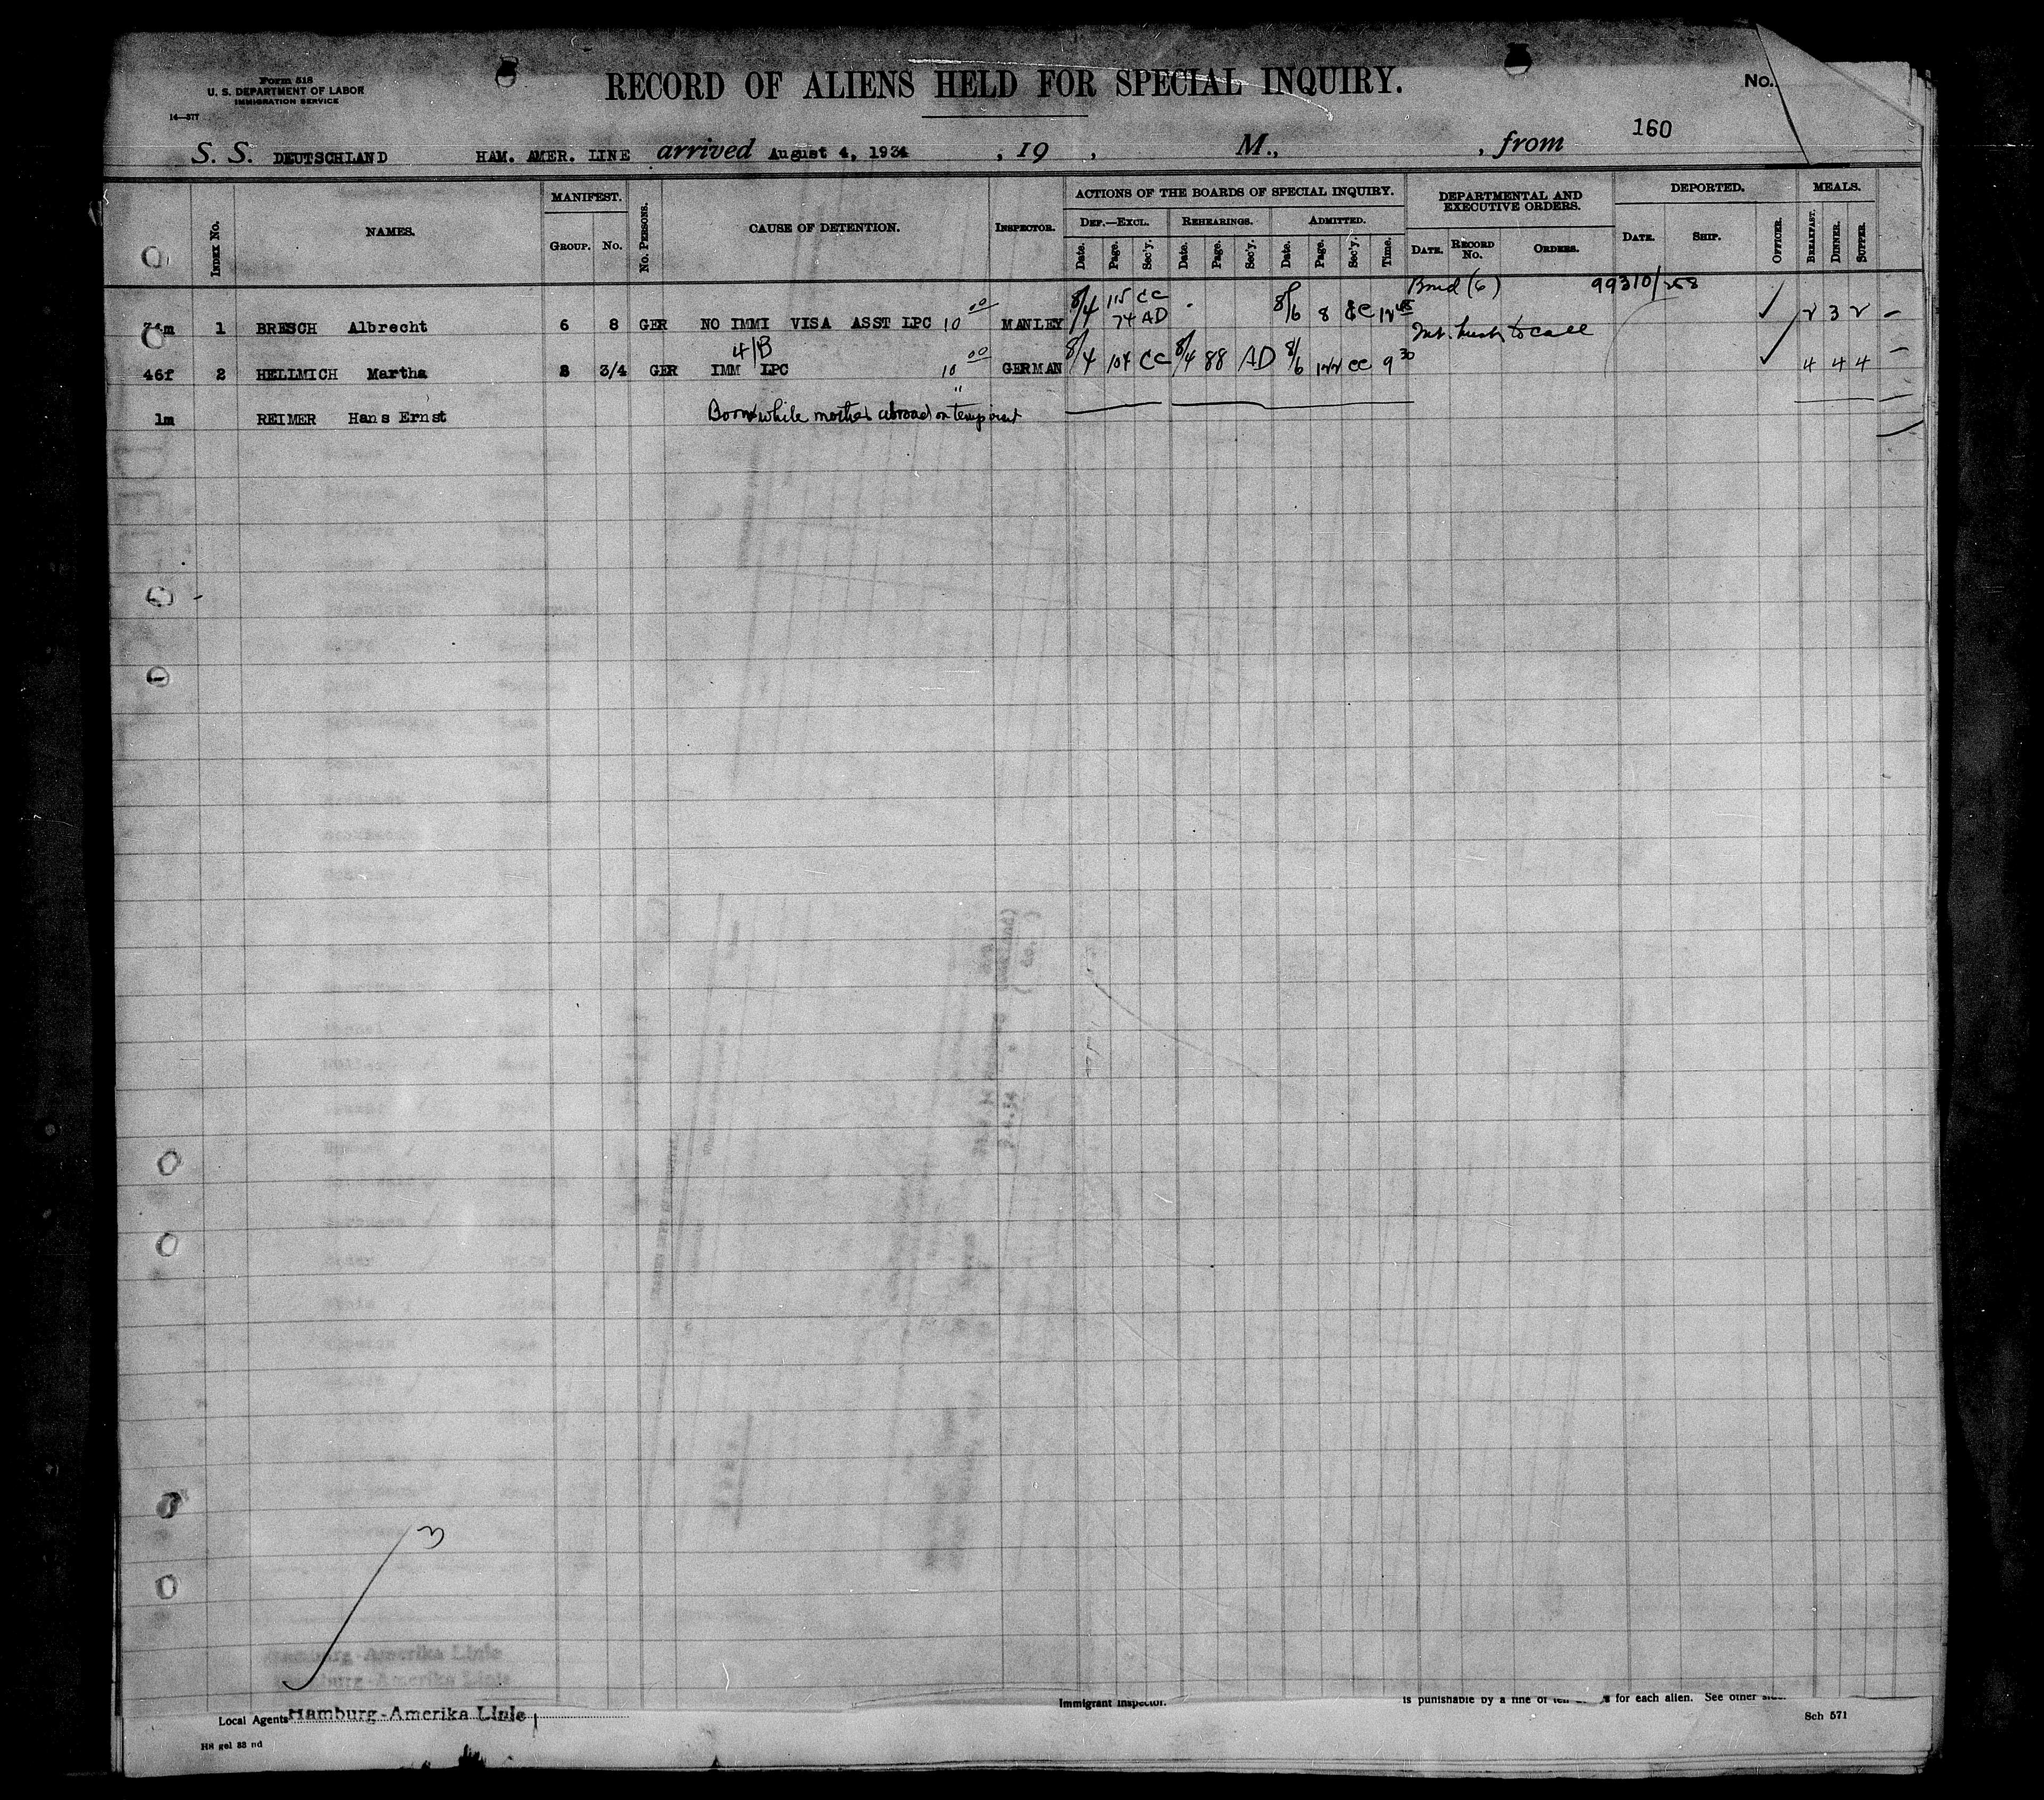 Form 518
U. S. DEPARTMENT OF LABOR
IMMIGRATION SERVICE
14—377
RECORD OF ALIENS HELD FOR SPECIAL INQUIRY.
No.
160
S. S. DEUTSCHLAND HAM. AMER. LINE arrived August 4, 1934 , 19 , M., , from
INDEX No. NAMES. MANIFEST. GROUP. No. No. PERSONS. CAUSE OF DETENTION. INSPECTOR.
ACTIONS OF THE BOARDS OF SPECIAL INQUIRY.
DEF.—EXCL. REHEARINGS. ADMITTED.
Date. Page. Sec'y. Date. Page. Sec'y. Date. Page. Sec'y. Time.
DEPARTMENTAL AND EXECUTIVE ORDERS.
DATE. RECORD No. ORDERS.
DEPORTED.
DATE. SHIP. OFFICER.
MEALS.
BREAKFAST. DINNER. SUPPER.
Bond (6) 99310/258
1 BRESCH Albrecht 6 8 GER NO IMMI VISA ASST LPC 10 00 MANLEY 8/4 115 CC 74 AD 8/6 8 12 2 3 2
to call
4/B
46f 2 HELLMICH Martha 8 3/4 GER IMM LPC 10 00 GERMAN 8/4 104 CC 8/4 88 AD 8/6 122 CC 9 30 4 4 4
1m REIMER Hans Ernst Born while mother abroad on temp visit
3
Hamburg-Amerika Linie
Local Agents Hamburg-Amerika Linie
Immigrant Inspector.
is punishable by a fine of for each alien. See other
H8 gel 33 nd
Sch 571